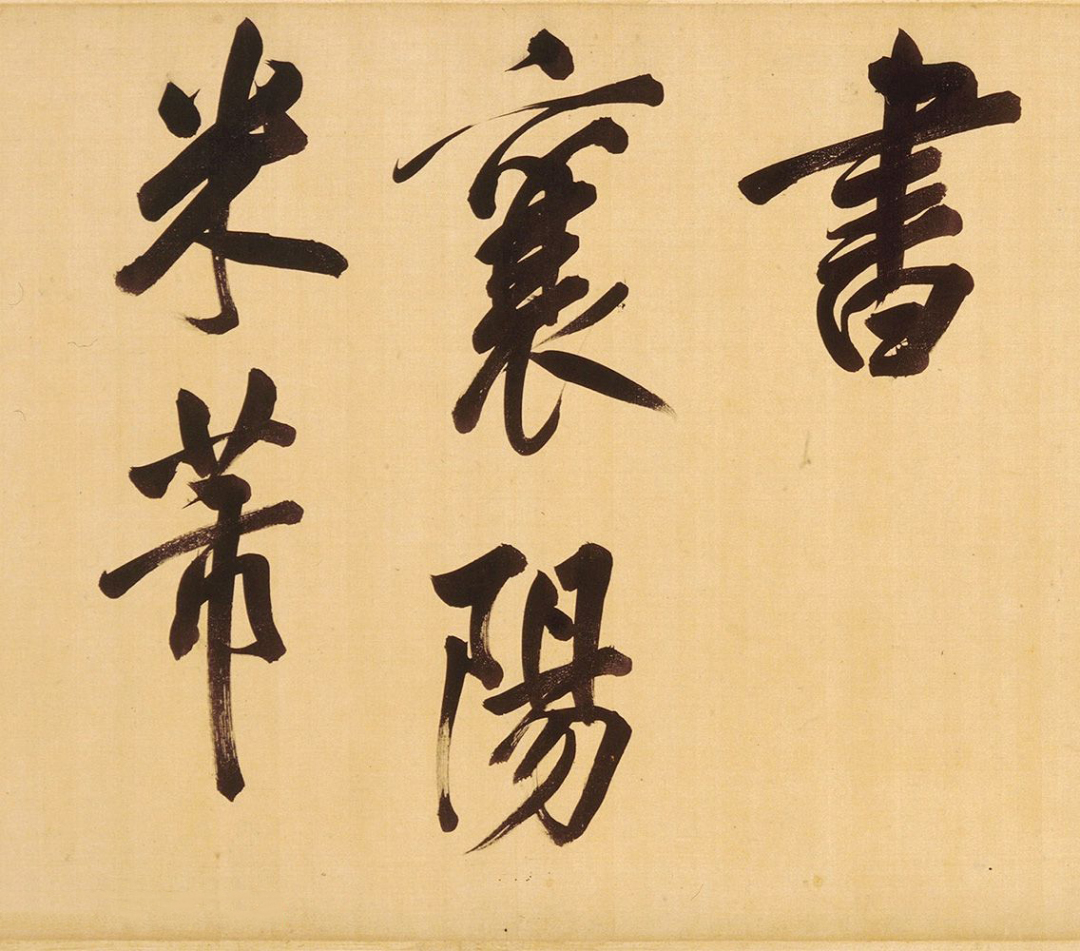 書
襄陽
米芾